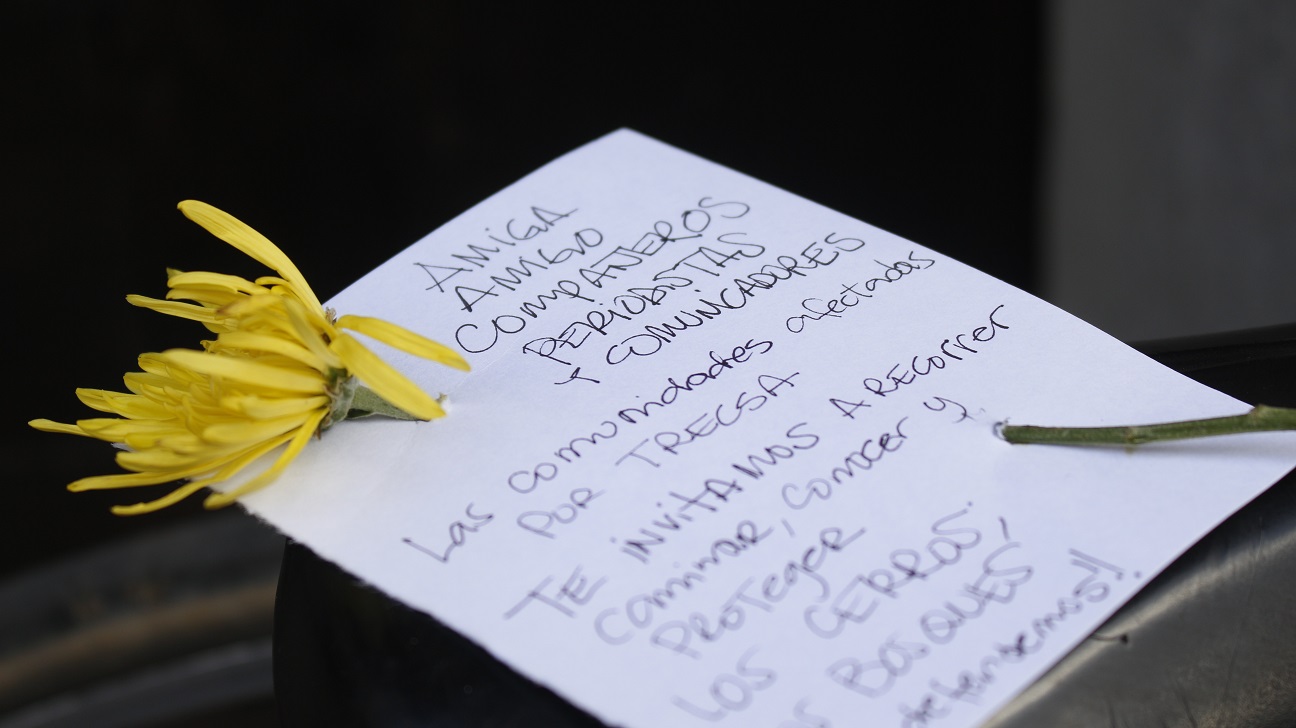 AMIGA
AMIGO
COMPAÑEROS
PERIODISTAS
y COMUNICADORES
Las comunidades afectadas
POR TRECSA
TE iNViTAMOS A RECORRER
Caminar, Conocer y
PROTEGER
LOS CERROS.
BOSQUES,